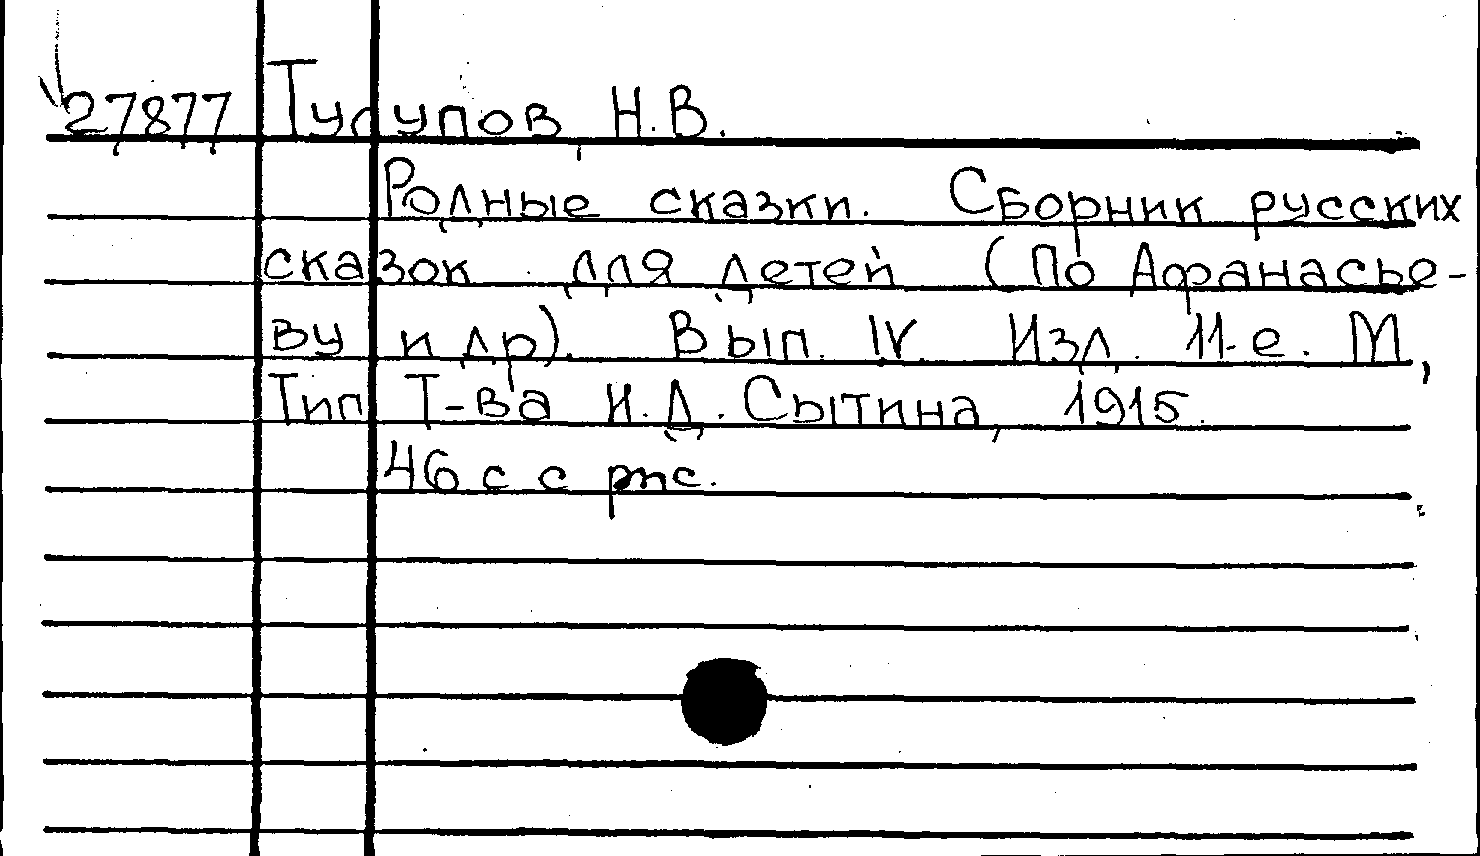 27877 Тулупов, Н.В.
Родные сказки. Сборник русских
сказок для детей (По Афанасье-
ву и др). Вып. IV. Изд. 11-е. М.,
Тип. Т-ва И.Д. Сытина, 1915.
46 с с рис.